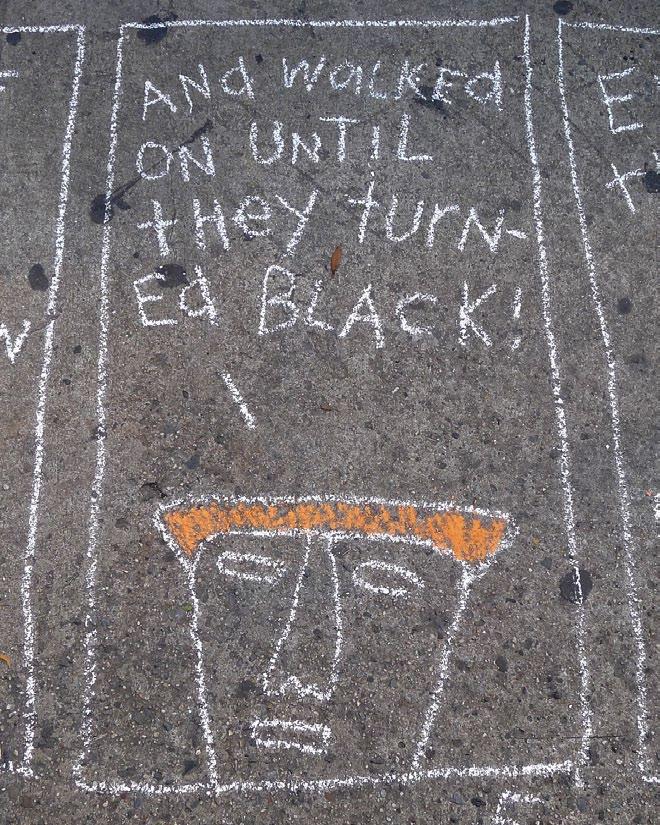 ANd WalKEd
ON UNTIL
tHey turN-
Ed BLACK!